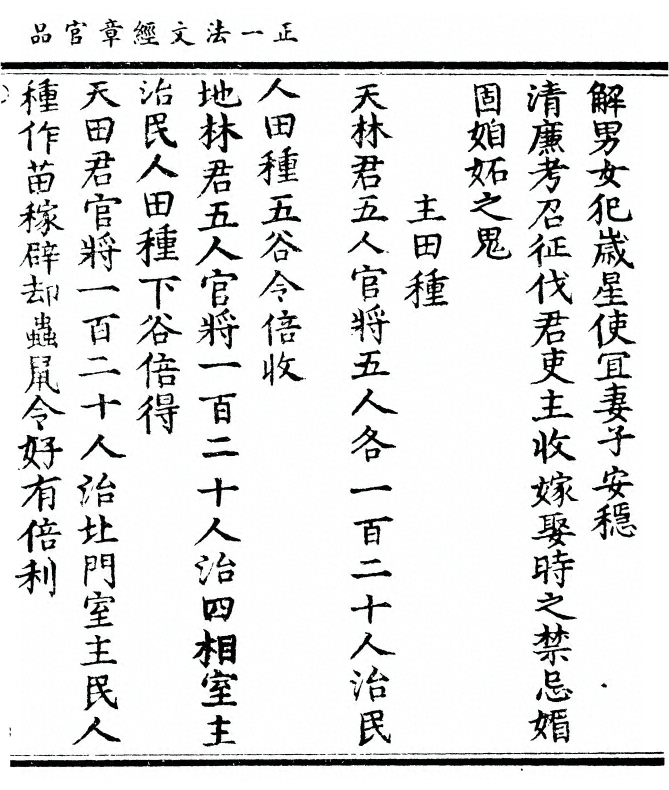 正一法文經章官品
解男女犯歲星使冝妻子安穩
清廉考召征伐君吏主收嫁娶時之禁忌婚
固妒之鬼
主田種
天林君五人官將五人各一百二十人治民
人田種五谷令倍收
地林君五人官將一百二十人治四相室主
治民人田種下谷倍得
天田君官將一百二十人治北門室主民人
種作苗稼辟却蟲鼠令好有倍利